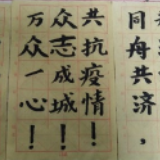 同舟共济，
共抗疫情！
众志成城！
万众一心！